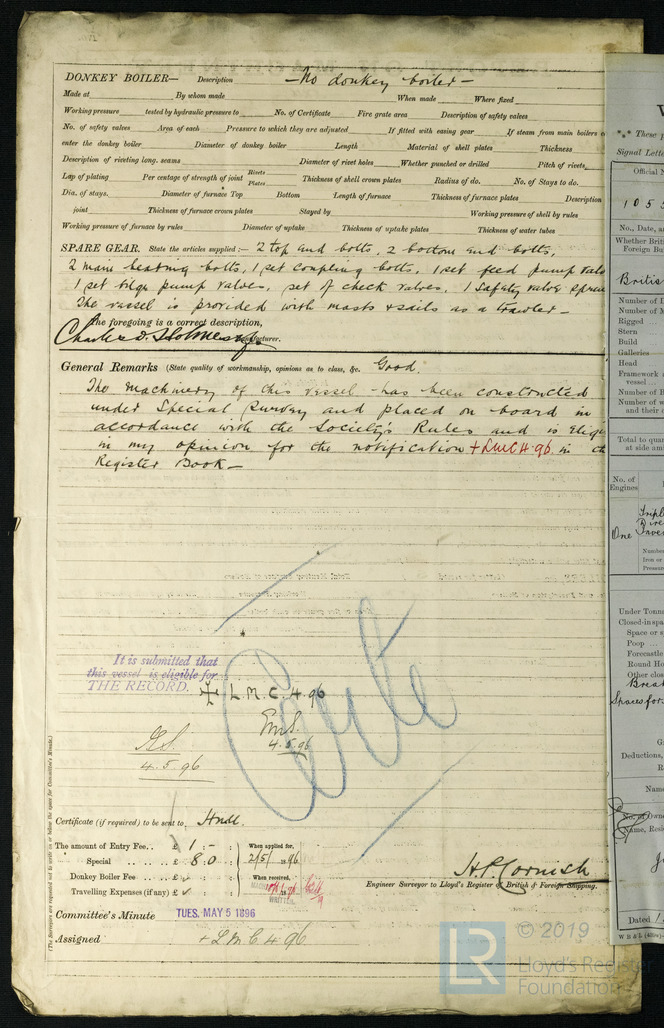 DONKEY BOILER— Description — No donkey boiler —
Made at By whom made When made Where fixed
Working pressure tested by hydraulic pressure to No. of Certificate Fire grate area Description of safety valves
No. of safety valves Area of each Pressure to which they are adjusted If fitted with easing gear If steam from main boilers c
enter the donkey boiler Diameter of donkey boiler Length Material of shell plates Thickness
Description of riveting long. seams Diameter of rivet holes Whether punched or drilled Pitch of rivets
Lap of plating Per centage of strength of joint Rivets Plates Thickness of shell crown plates Radius of do. No. of Stays to do.
Dia. of stays. Diameter of furnace Top Bottom Length of furnace Thickness of furnace plates Description
joint Thickness of furnace crown plates Stayed by Working pressure of shell by rules
Working pressure of furnace by rules Diameter of uptake Thickness of uptake plates Thickness of water tubes
SPARE GEAR. State the articles supplied:— 2 top end bolts, 2 bottom end bolts,
2 main bearing bolts, 1 set coupling bolts, 1 set feed pump valv
1 set bilge pump valves, set of check valves, 1 safety valve
The vessel is provided with masts & sails as a trawler —
The foregoing is a correct description,
Charles D. Holmes Manufacturer.
General Remarks (State quality of workmanship, opinions as to class, &c. Good.
The machinery of this vessel has been constructed
under Special Survey and placed on board in
accordance with the Society's Rules and is Elig
in my opinion for the notification + LMC 4.96. in th
Register Book —
It is submitted that
this vessel is eligible for
THE RECORD. + L.M.C. 4.96
4.5.96
4.5.96
Certe
(The Surveyors are requested not to write on or below the space for Committee's Minute.)
Certificate (if required) to be sent to Hull.
The amount of Entry Fee.. £ 1 : - When applied for,
Special £ 8 0 : 2/5/1896
Donkey Boiler Fee £ When received,
Travelling Expenses (if any) £
H. P. Cornish
Engineer Surveyor to Lloyd's Register of British & Foreign Shipping.
Committee's Minute TUES. MAY 5 1896
Assigned + L M C 4 96
LR © 2019
Lloyd's Register
Foundation
These p
Signal Lette
Official N
1055
No., Date, an
Whether Briti
Foreign Bu
Britis
Number of D
Number of M
Rigged
Stern
Build
Galleries
Head
Framework a
vessel
Number of B
Number of w
and their c
Total to quar
at side am
No. of
Engines
One
Number
Iron or
Pressure
Under Tonna
Closed-in spa
Space or s
Poop
Forecastle
Round Ho
Other clos
Break
Spaces for
Deductions,
Name
No. of Owne
Name, Resi
Dated